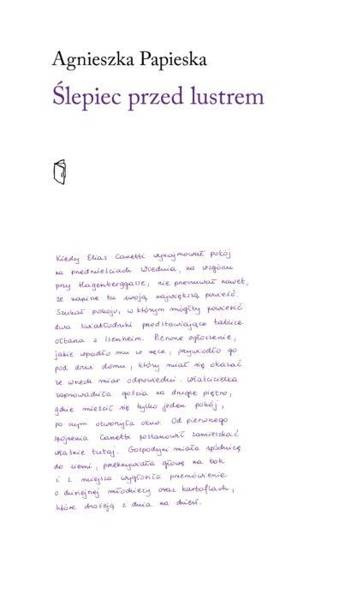 Agnieszka Papieska
Ślepiec przed lustrem
Kiedy Elias Canetti wynajmował pokój
na przedmieściach Wiednia, na wzgórzu
przy Hagenberggasse, nie przeczuwał nawet,
że napisze tu swoją największą powieść.
Szukał pokoju, w którym mógłby powiesić
dwa światłodruki przedstawiające tablice
ołtarza z Isenheim. Pewne ogłoszenie,
jakie wpadło mu w ręce, przywiodło go
pod drzwi domu, który miał się okazać
ze wszech miar odpowiedni. Właścicielka
zaprowadziła gościa na drugie piętro,
gdzie mieścił się tylko jeden pokój,
po czym otworzyła okno. Od pierwszego
spojrzenia Canetti postanowił zamieszkać
właśnie tutaj. Gospodyni miała spódnicę
do ziemi, przekrzywiała głowę na bok
i z miejsca wygłosiła przemówienie
o dzisiejszej młodzieży oraz kartoflach,
które drożeją z dnia na dzień.